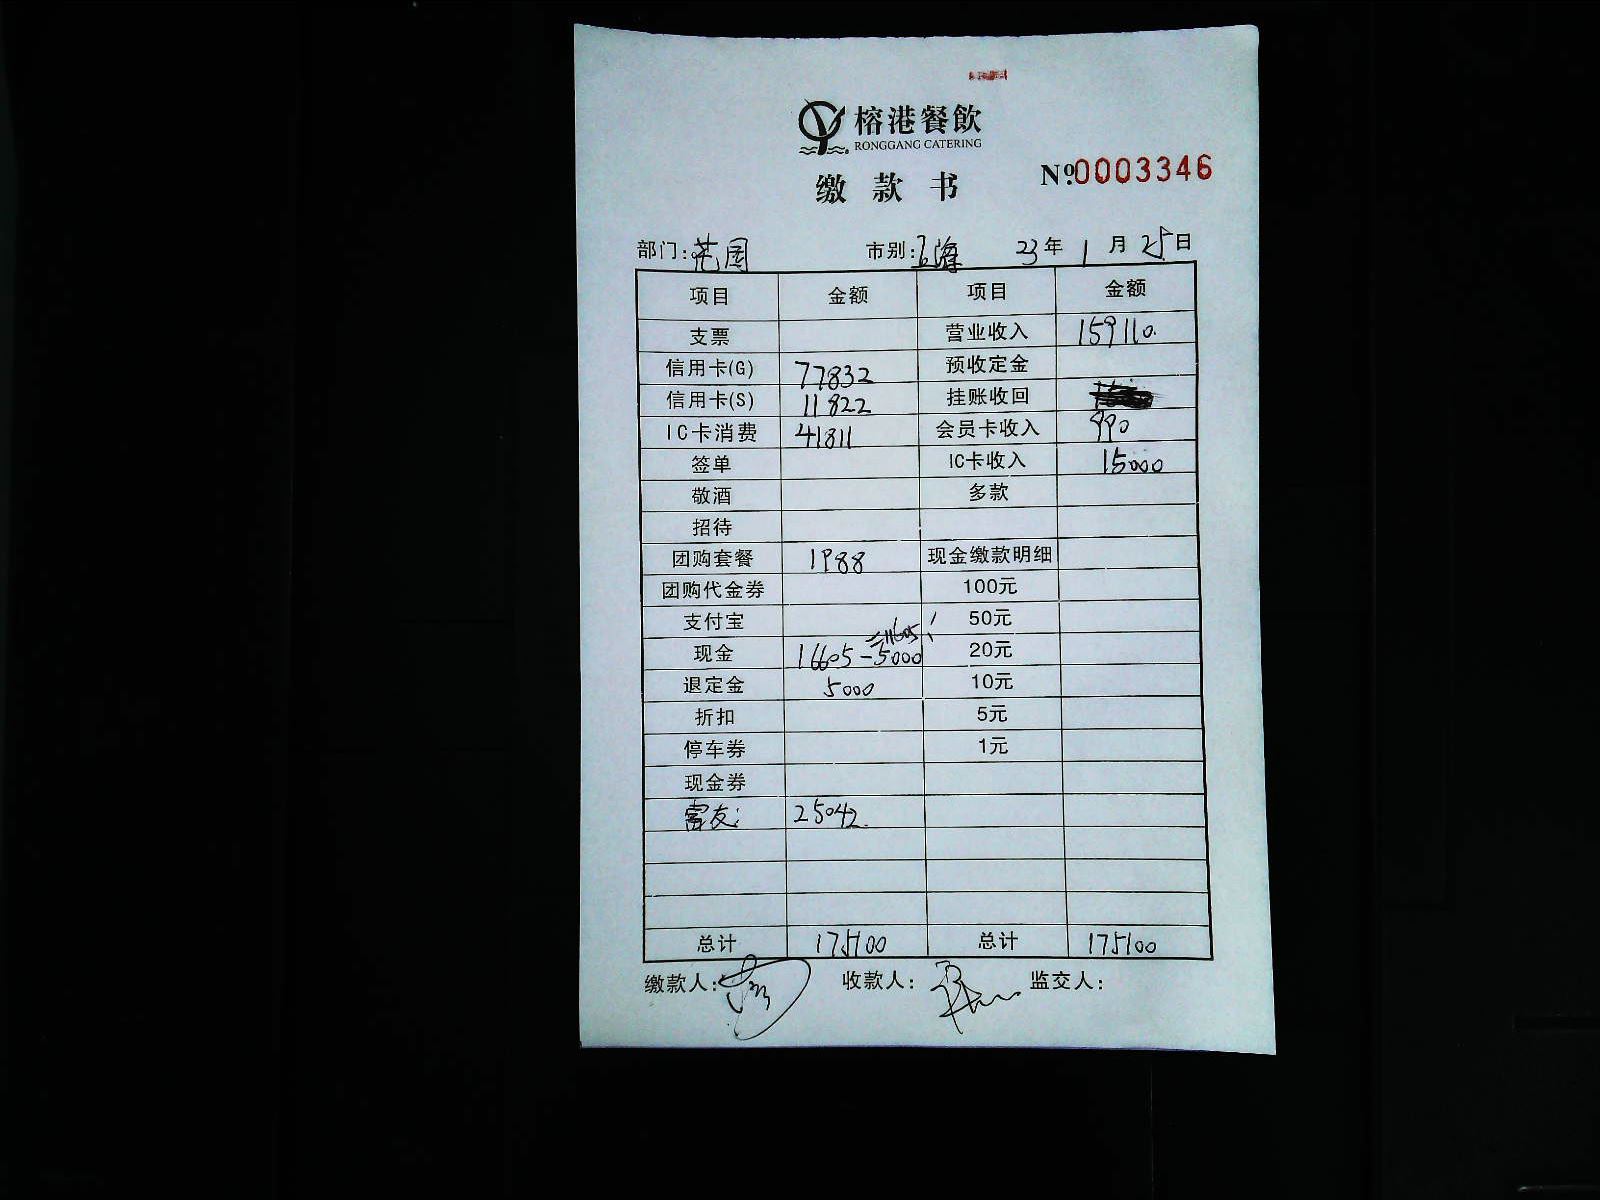 榕港餐飲
RONGGANG CATERING
缴款书
№0003346
部门: 市别: 23年1月25日
项目 金额 项目 金额
支票 营业收入 159110
信用卡(G) 77832 预收定金
信用卡(S) 11822 挂账收回
IC卡消费 41811 会员卡收入 990
签单 IC卡收入 15000
敬酒 多款
招待
团购套餐 1988 现金缴款明细
团购代金券 100元
支付宝 50元
=11605
现金 16605-5000 20元
退定金 5000 10元
折扣 5元
停车券 1元
现金券
富友: 25042
总计 175100 总计 175100
缴款人: 收款人: 监交人: